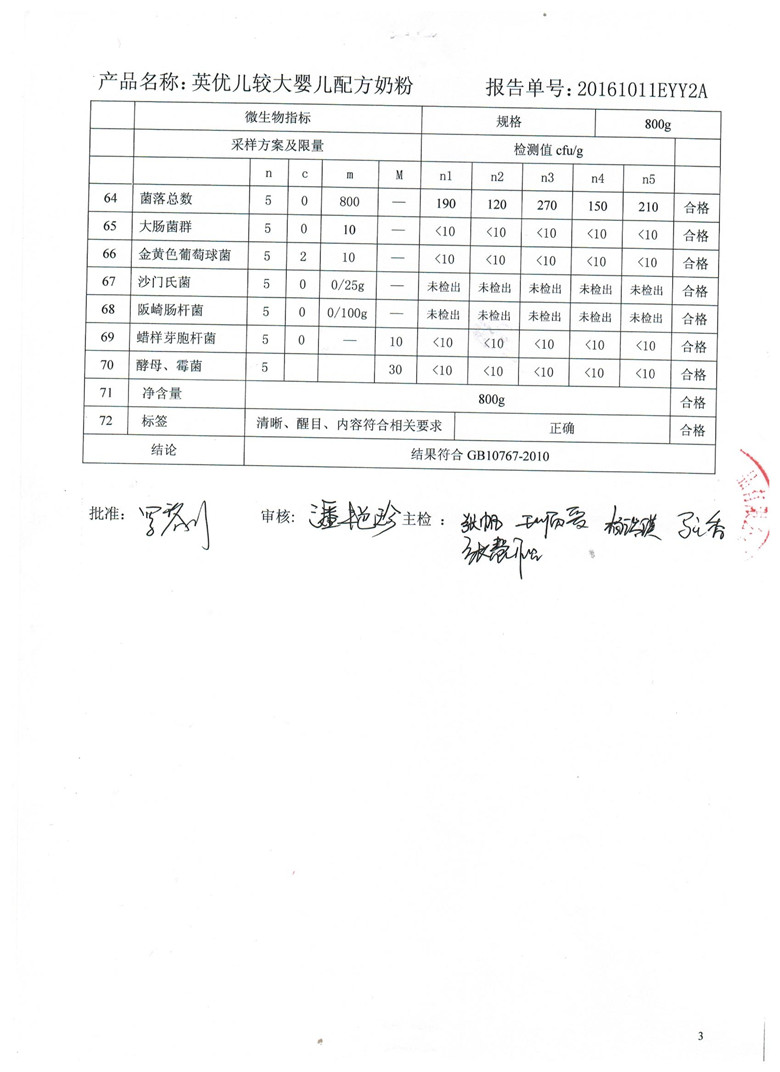 产品名称：英优儿较大婴儿配方奶粉 报告单号：20161011EYY2A
微生物指标 规格 800g
采样方案及限量 检测值 cfu/g
n c m M n1 n2 n3 n4 n5
64 菌落总数 5 0 800 — 190 120 270 150 210 合格
65 大肠菌群 5 0 10 — <10 <10 <10 <10 <10 合格
66 金黄色葡萄球菌 5 2 10 — <10 <10 <10 <10 <10 合格
67 沙门氏菌 5 0 0/25g — 未检出 未检出 未检出 未检出 未检出 合格
68 阪崎肠杆菌 5 0 0/100g — 未检出 未检出 未检出 未检出 未检出 合格
69 蜡样芽胞杆菌 5 0 — 10 <10 <10 <10 <10 <10 合格
70 酵母、霉菌 5 30 <10 <10 <10 <10 <10 合格
71 净含量 800g 合格
72 标签 清晰、醒目、内容符合相关要求 正确 合格
结论 结果符合 GB10767-2010
批准： 审核： 主检：
3